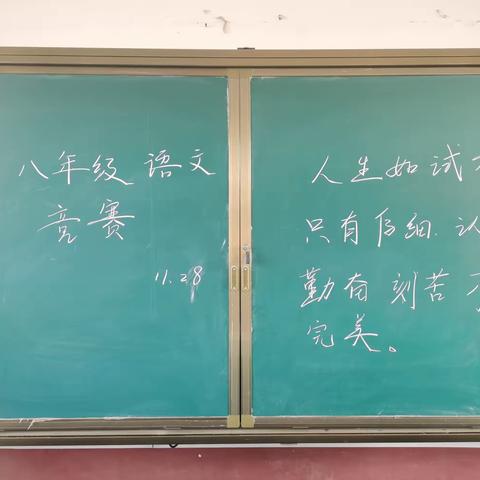 八年级 语文
竞赛
11.28
人生如试
只有仔细.认
勤奋 刻苦 才
完美。